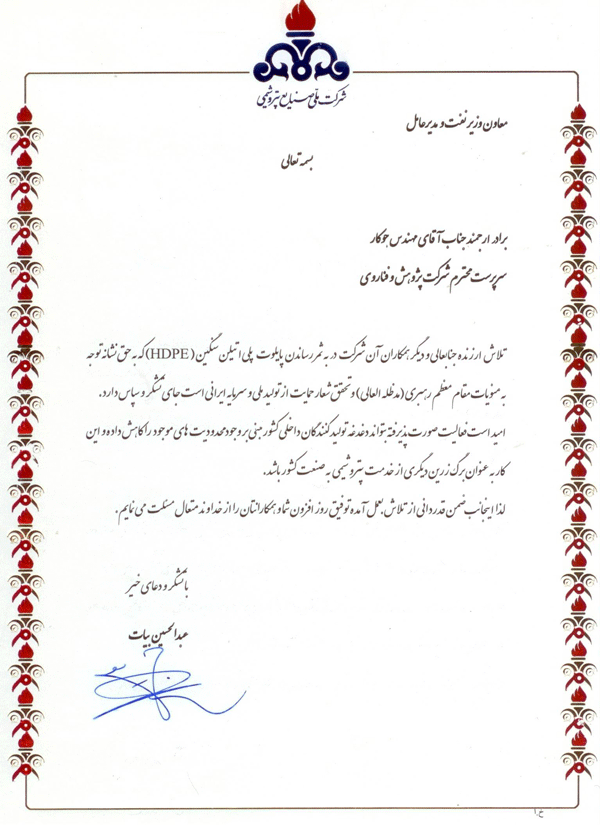 شرکت ملی صنایع پتروشیمی
معاون وزیر نفت و مدیرعامل
بسمه تعالی
برادر ارجمند جناب آقای مهندس جوکار
سرپرست محترم شرکت پژوهش و فناروی
تلاش ارزنده جنابعالی و دیگر همکاران آن شرکت در به ثمر رساندن پایلوت پلی اتیلن سنگین (HDPE) که به حق نشانه توجه
به منویات مقام معظم رهبری (مدظله العالی) و تحقق شعار حمایت از تولید ملی و سرمایه ایرانی است جای تشکر و سپاس دارد.
امید است فعالیت صورت پذیرفته بتواند دغدغه تولیدکنندگان داخلی کشور مبنی بر وجود محدودیت های موجود را کاهش داده و این
کار به عنوان برگ زرین دیگری از خدمت پتروشیمی به صنعت کشور باشد.
لذا اینجانب ضمن قدردانی از تلاش بعمل آمده توفیق روز افزون شما و همکارانتان را از خداوند متعال مسئلت می نمایم.
با تشکر و دعای خیر
عبدالحسین بیات